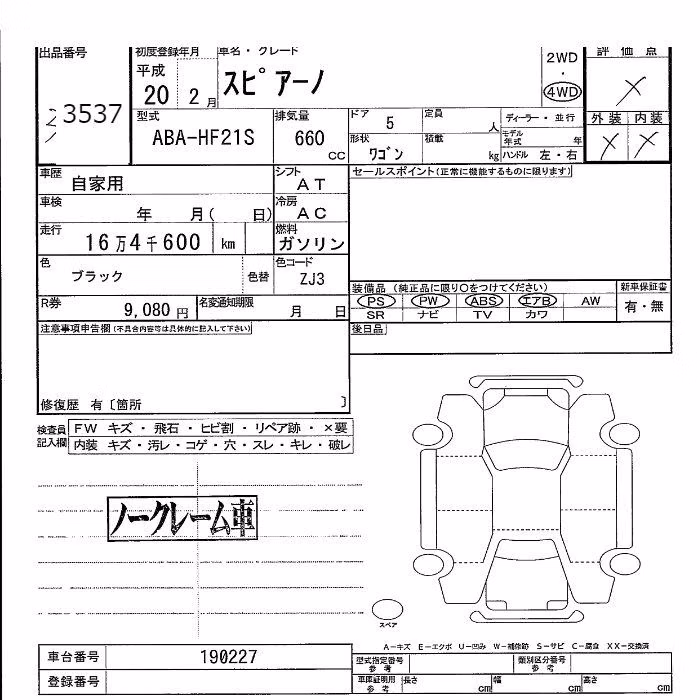 出品番号 初度登録年月 車名・グレード 2WD 評価点
平成 ・
20 2月 スピアーノ 4WD ×
3537 型式 排気量 ドア 5 定員 人 ディーラー・並行 外装 内装
ABA-HF21S 660 cc 形状 ワゴン 積載 kg モデル年式 年 × ×
ハンドル 左・右
車歴 自家用 シフト AT セールスポイント(正常に機能するものに限ります)
車検 年 月( 日) 冷房 AC
走行 16万4千600 km 燃料 ガソリン
色 ブラック 色替 色コード ZJ3
装備品 (純正品に限り○をつけてください) 新車保証書
R券 9,080円 名変通知期限 月 日 PS PW ABS エアB AW 有・無
SR ナビ TV カワ
注意事項申告欄(不具合内容等は具体的に記入して下さい) 後日品
修復歴 有〔箇所 〕
検査員記入欄 FW キズ・飛石・ヒビ割・リペア跡・×要
内装 キズ・汚レ・コゲ・穴・スレ・キレ・破レ
ノークレーム車
スペア
A−キズ E−エクボ U−凹み W−補修跡 S−サビ C−腐食 XX−交換済
車台番号 190227 型式指定番号 参考 類別区分番号 参考
登録番号 車庫証明用 参考 長さ cm 幅 cm 高さ cm